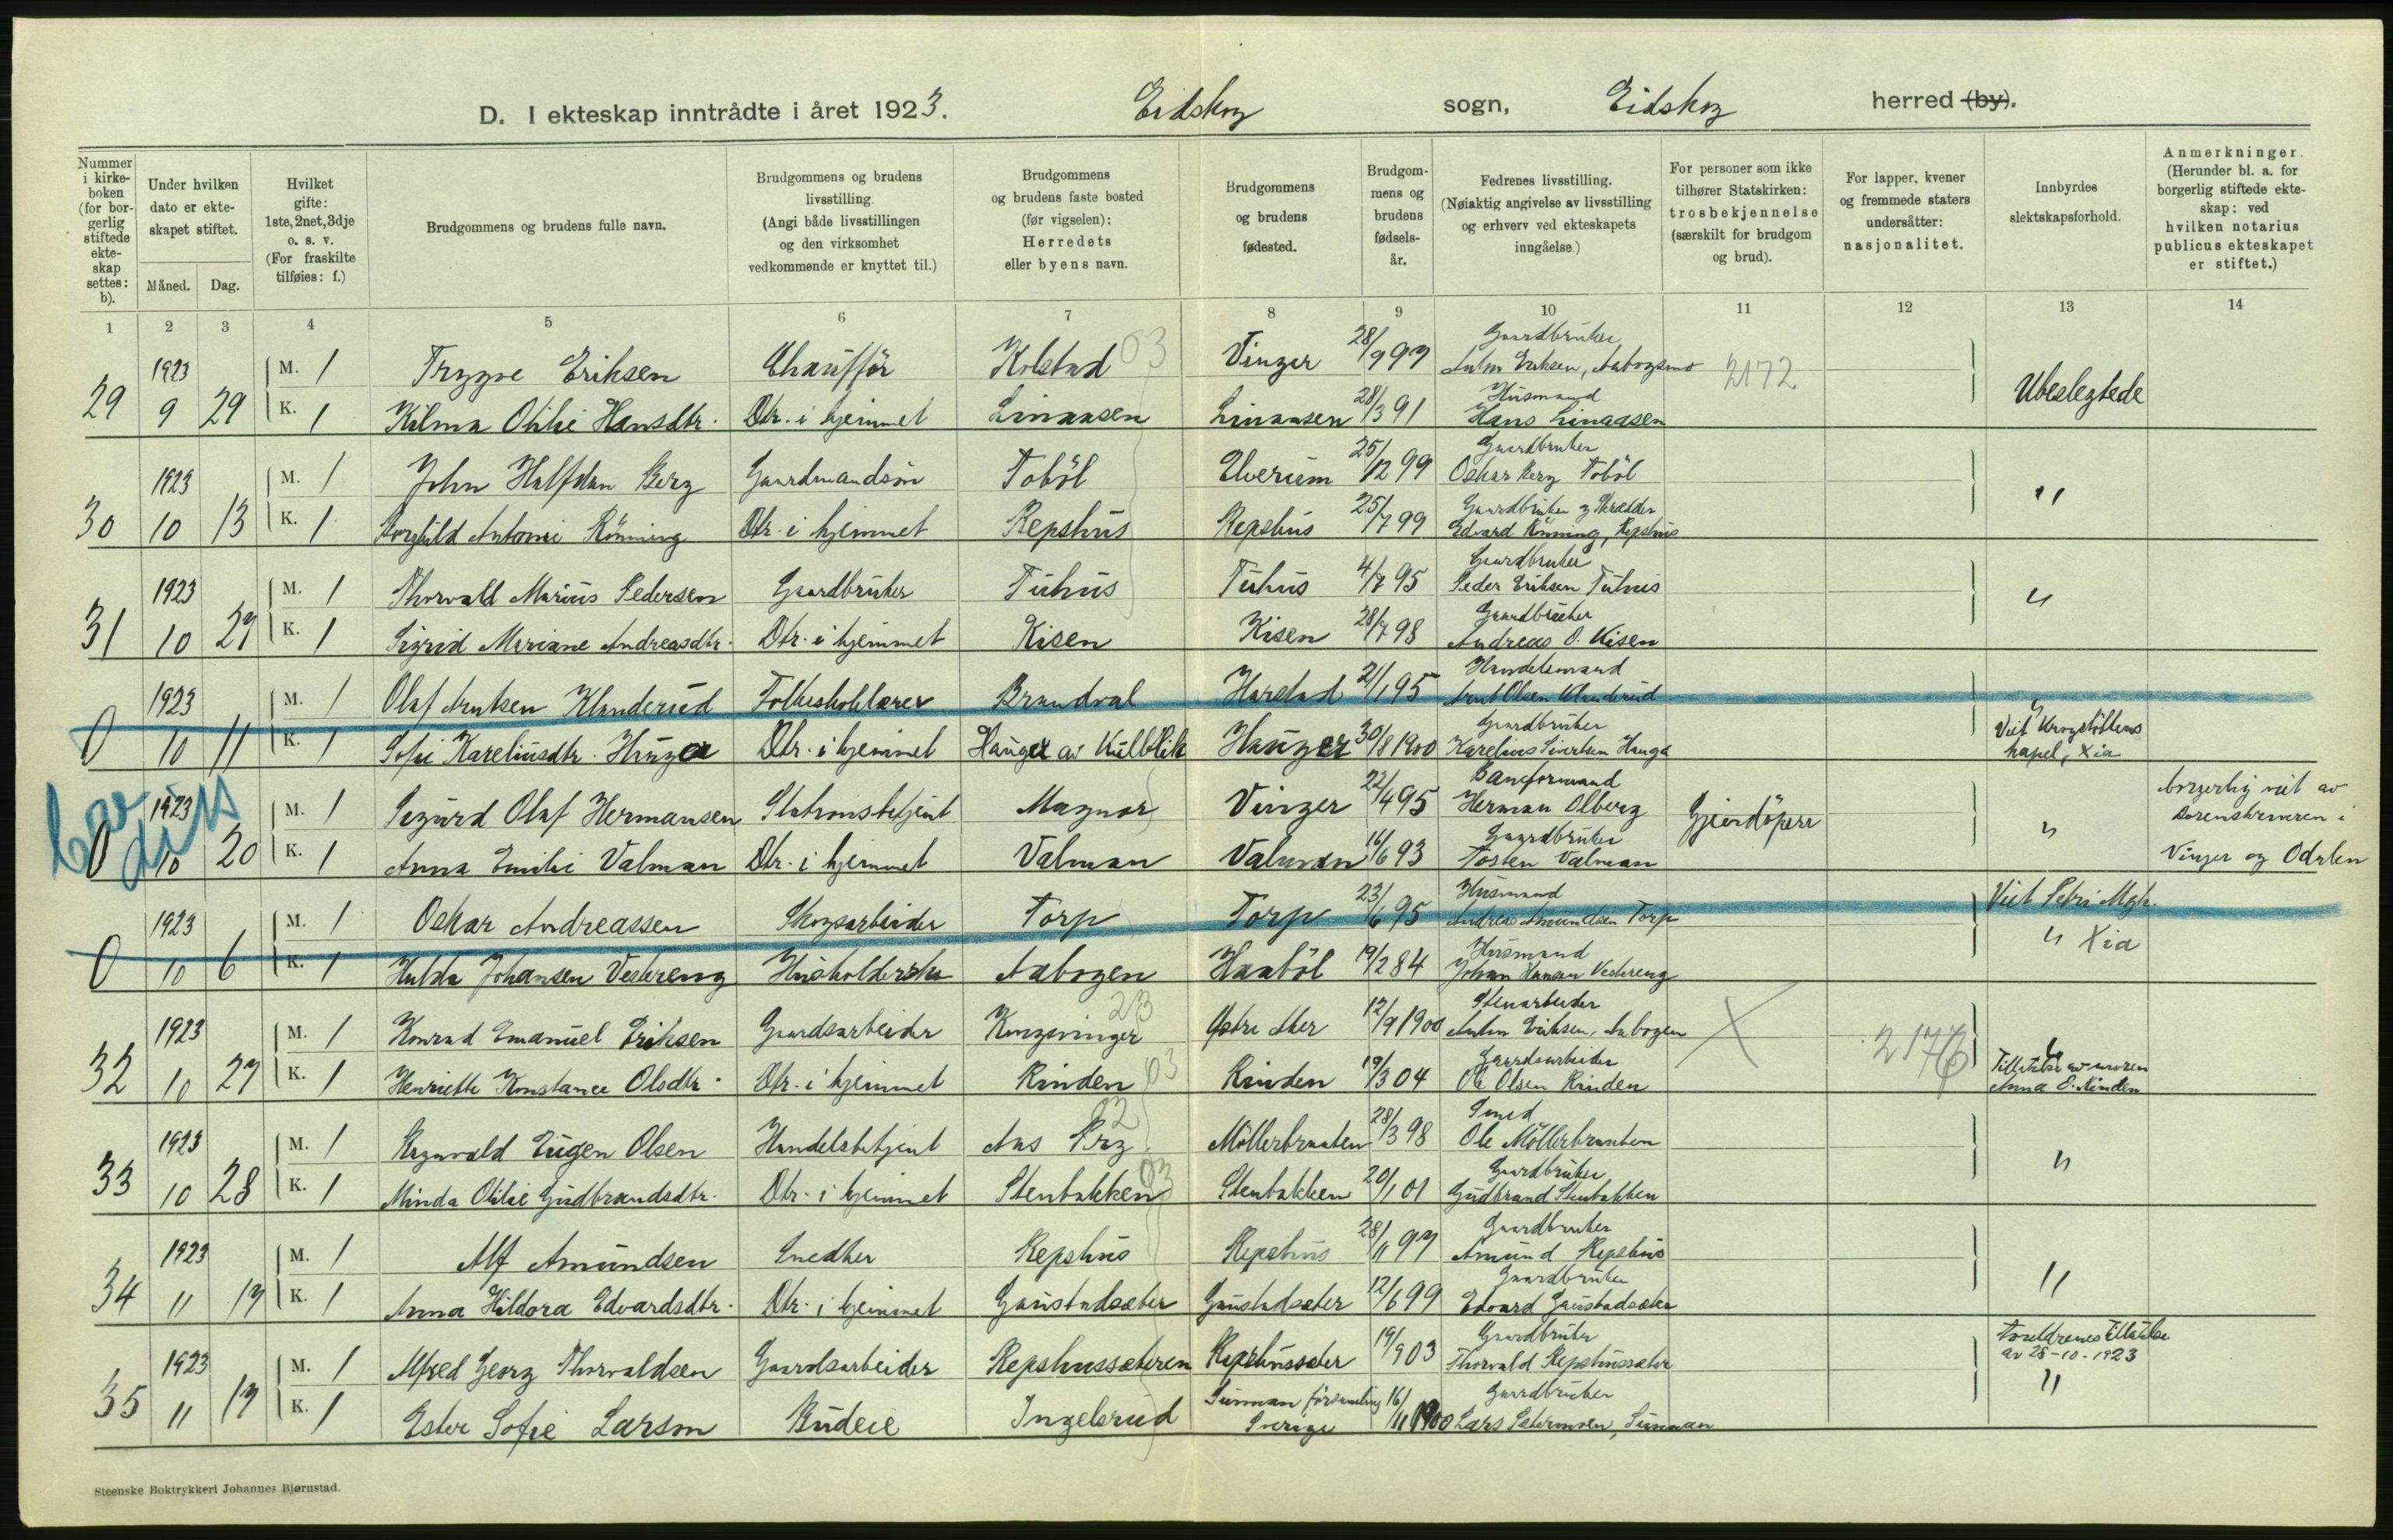 D. I ekteskap inntrådte i året 1923. Eidskog sogn, Eidskog herred (by).
Nummer i kirkeboken (for borgerlig stiftede ekteskap settes: b).
Under hvilken dato er ekteskapet stiftet.
Måned. Dag.
Hvilket gifte: 1ste, 2net, 3dje o. s. v. (For fraskilte tilføies: f.)
Brudgommens og brudens fulle navn.
Brudgommens og brudens livsstilling. (Angi både livsstillingen og den virksomhet vedkommende er knyttet til.)
Brudgommens og brudens faste bosted (før vigselen): Herredets eller byens navn.
Brudgommens og brudens fødested.
Brudgommens og brudens fødselsår.
Fedrenes livsstilling. (Nøiaktig angivelse av livsstilling og erhverv ved ekteskapets inngåelse.)
For personer som ikke tilhører Statskirken: trosbekjennelse (særskilt for brudgom og brud).
For lapper, kvener og fremmede staters undersåtter: nasjonalitet.
Innbyrdes slektskapsforhold.
Anmerkninger. (Herunder bl. a. for borgerlig stiftede ekteskap: ved hvilken notarius publicus ekteskapet er stiftet.)
1 2 3 4 5 6 7 8 9 10 11 12 13 14
29 1923 9 29 M. 1 Trygve Eriksen Chaufför Kolstad 03 Vinger 28/9 97 Gaardbruker Anton Eriksen, Aabogsmo 2172 Ubeslegtede
K. 1 Kilma Otilie Hansdtr. Dtr. i hjemmet Linaasen Linaasen 28/3 91 Husmand Hans Linaasen
30 1923 10 13 M. 1 John Halfdan Berg Gaardmandsön Toböl Elverum 25/12 99 Gaardbruker Oskar Berg Toböl "
K. 1 Borghild Antonie Rönning Dtr. i hjemmet Repshus Repshus 25/7 99 Gaardbruker og Skrædder Edvard Rönning, Repshus
31 1923 10 27 M. 1 Thorvald Marius Pedersen Gaardbruker Tuhus Tuhus 4/7 95 Gaardbruker Peder Eriksen Tuhus "
K. 1 Sigrid Mariane Andreasdtr. Dtr. i hjemmet Kisen Kisen 28/7 98 Gaardbruker Andreas O. Kisen
0 1923 10 11 M. 1 Olaf Arntsen Klanderud Folkeskolelærer Brandval Harstad 21/1 95 Handelsmand Arnt Olsen Klanderud "
K. 1 Sofie Kareliusdtr. Hauger Dtr. i hjemmet Hauger av Kulblik Hauger 30/8 1900 Gaardbruker Karelius Sivertsen Hauga Viet Krogstöttens kapel, Xia
0 1923 10 20 M. 1 Sigurd Olaf Hermansen Stationsbetjent Magnor Vinger 22/4 95 Baneformand Herman Olberg Gjendöper " borgerlig viet av Sorenskriveren i Vinger og Odalen
K. 1 Anna Emilie Valman Dtr. i hjemmet Valman Valman 16/6 93 Gaardbruker Tosten Valman
0 1923 10 6 M. 1 Oskar Andreassen Skogsarbeider Torp Torp 23/6 95 Husmand Andreas Amundsen Torp Viet Petri Mgh.
K. 1 Hulda Johansen Vestereng Husholderske Aabogen Haaböl 19/2 84 Husmand Johan Hansen Vestereng " Xia
32 1923 10 27 M. 1 Konrad Emanuel Eriksen Gaardsarbeider Kongsvinger 23 Östre Aker 12/9 1900 Stenarbeider Anton Eriksen, Aabogen X 2176 "
K. 1 Henriette Konstance Olsdtr. Dtr. i hjemmet Rinden 03 Rinden 19/3 04 Gaardsarbeider Ole Olsen Rinden Tillatelse av moren Anna E. Rinden
33 1923 10 28 M. 1 Ragnvald Eugen Olsen Handelsbetjent Aas 02 Möllerbraaten 28/3 98 Smed Ole Möllerbraaten "
K. 1 Minda Otilie Gudbrandsdtr. Dtr. i hjemmet Stenbakken 03 Stenbakken 20/1 01 Gaardbruker Gudbrand Stenbakken
34 1923 11 17 M. 1 Alf Amundsen Snedker Repshus Repshus 28/11 97 Gaardbruker Amund Repshus "
K. 1 Anna Hildora Edvardsdtr. Dtr. i hjemmet Gaustadsæter Gaustadsæter 12/6 99 Gaardbruker Edvard Gaustadsæter
35 1923 11 17 M. 1 Alfred Georg Thorvaldsen Gaardsarbeider Repshussæteren Repshussæter 19/9 03 Gaardbruker Thorvald Repshussæter Foreldrenes Tillatelse av 28-10-1923
K. 1 Ester Sofie Larson Budeie Ingelsrud Sunman församling Sverige 16/11 1900 Gaardbruker Lars Sætermoen, Sunman "
Steenske Boktrykkeri Johannes Bjørnstad.